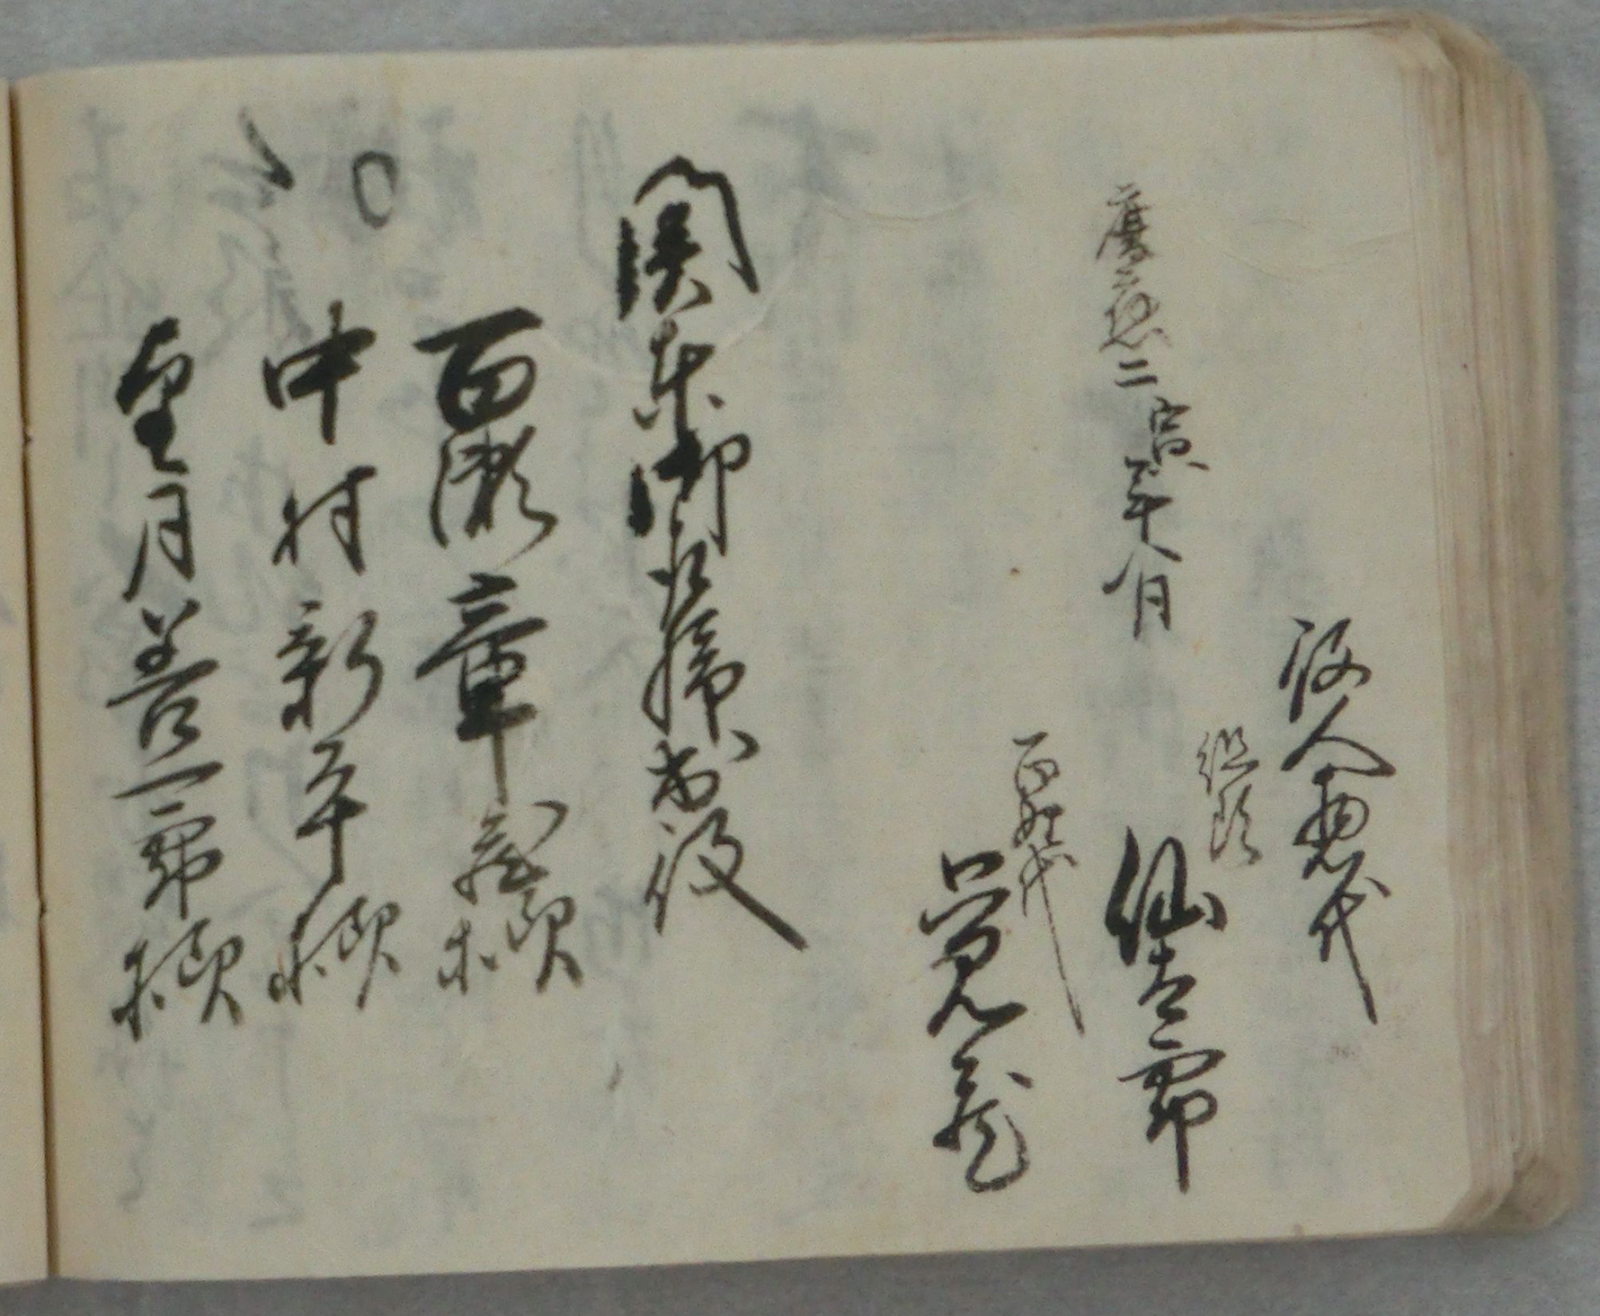 役人惣代
組頭
仙太郎
慶應二寅年八月
百姓代
覚蔵
関東御取締出役
百瀬章蔵様
中村新平様
望月善一郎様